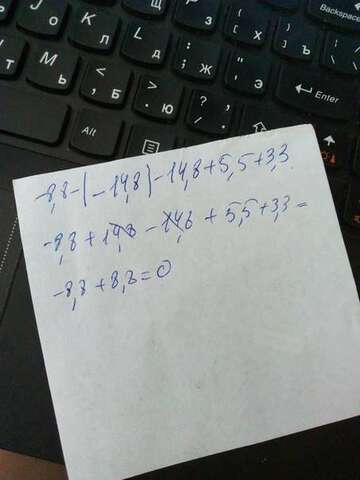 Backspace
Ъ
Л
Д
Ж
Э
Enter
M Ь
< , Б
> . Ю
? /
Alt
Ctrl
-8,8-(-14,8)-14,8+5,5+3,3
-8,8+14,8-14,8+5,5+3,3=
-8,8+8,8=0